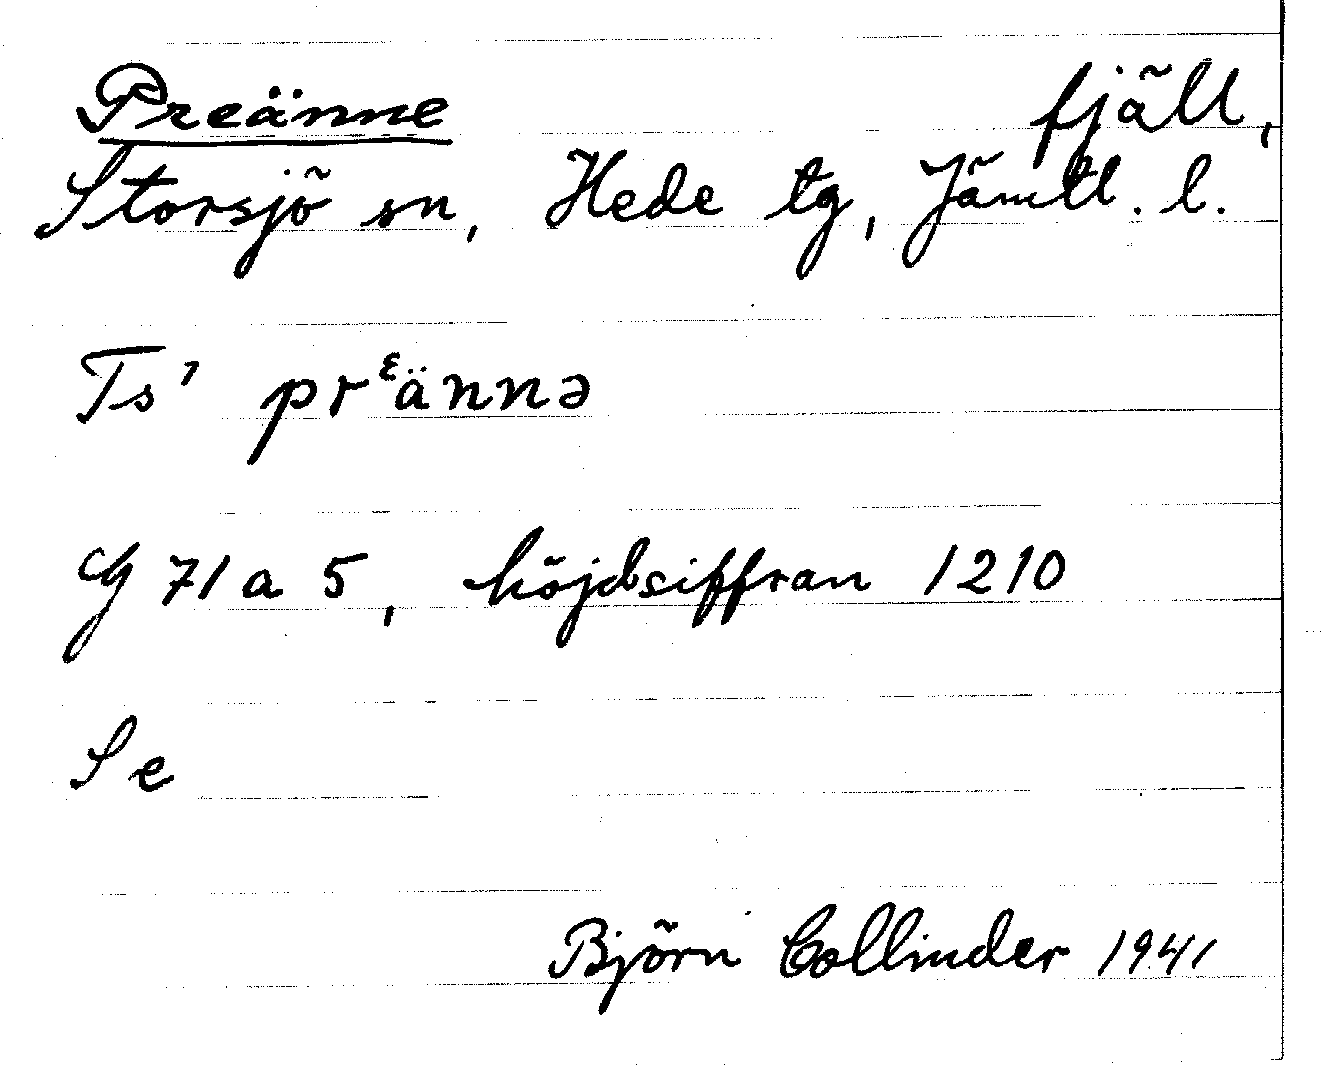 Preänne fjäll,
Storsjö sn, Hede tg, Jämtl. l.
Ts' prᵋännə
G 71 a 5, höjdsiffran 1210
Se
Björn Collinder 1941